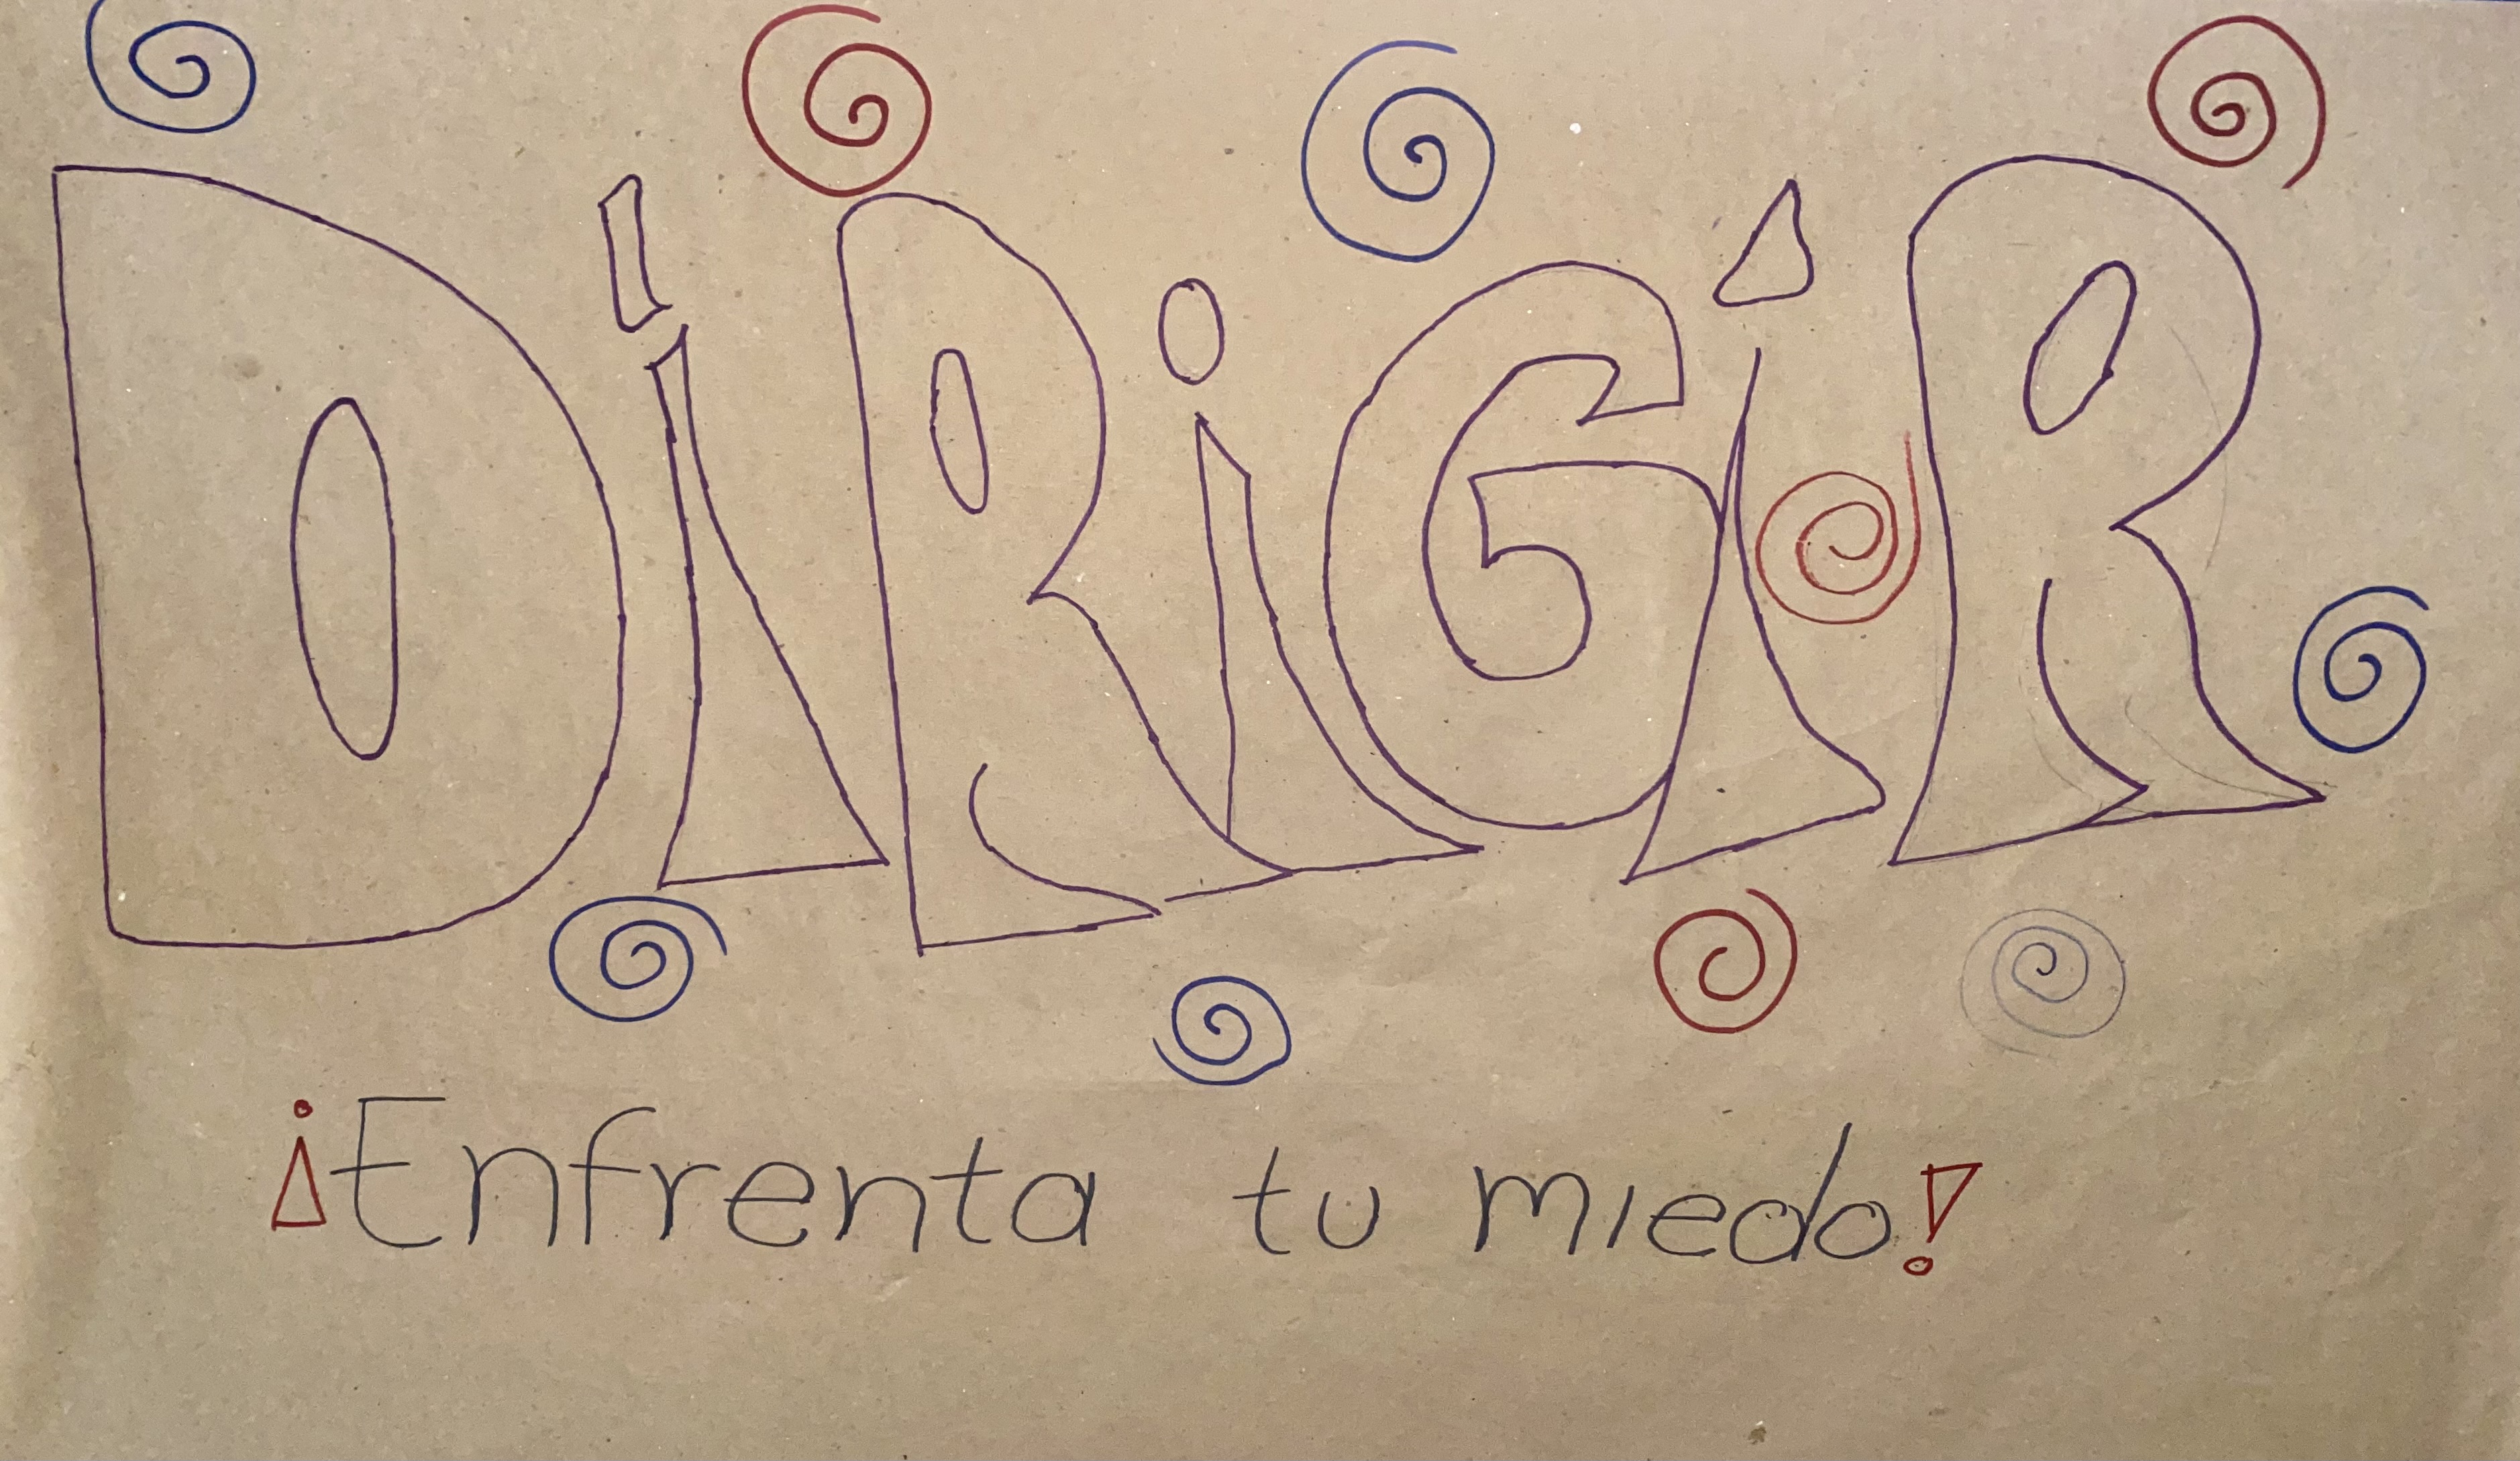 DiRiGiR
¡Enfrenta tu miedo!